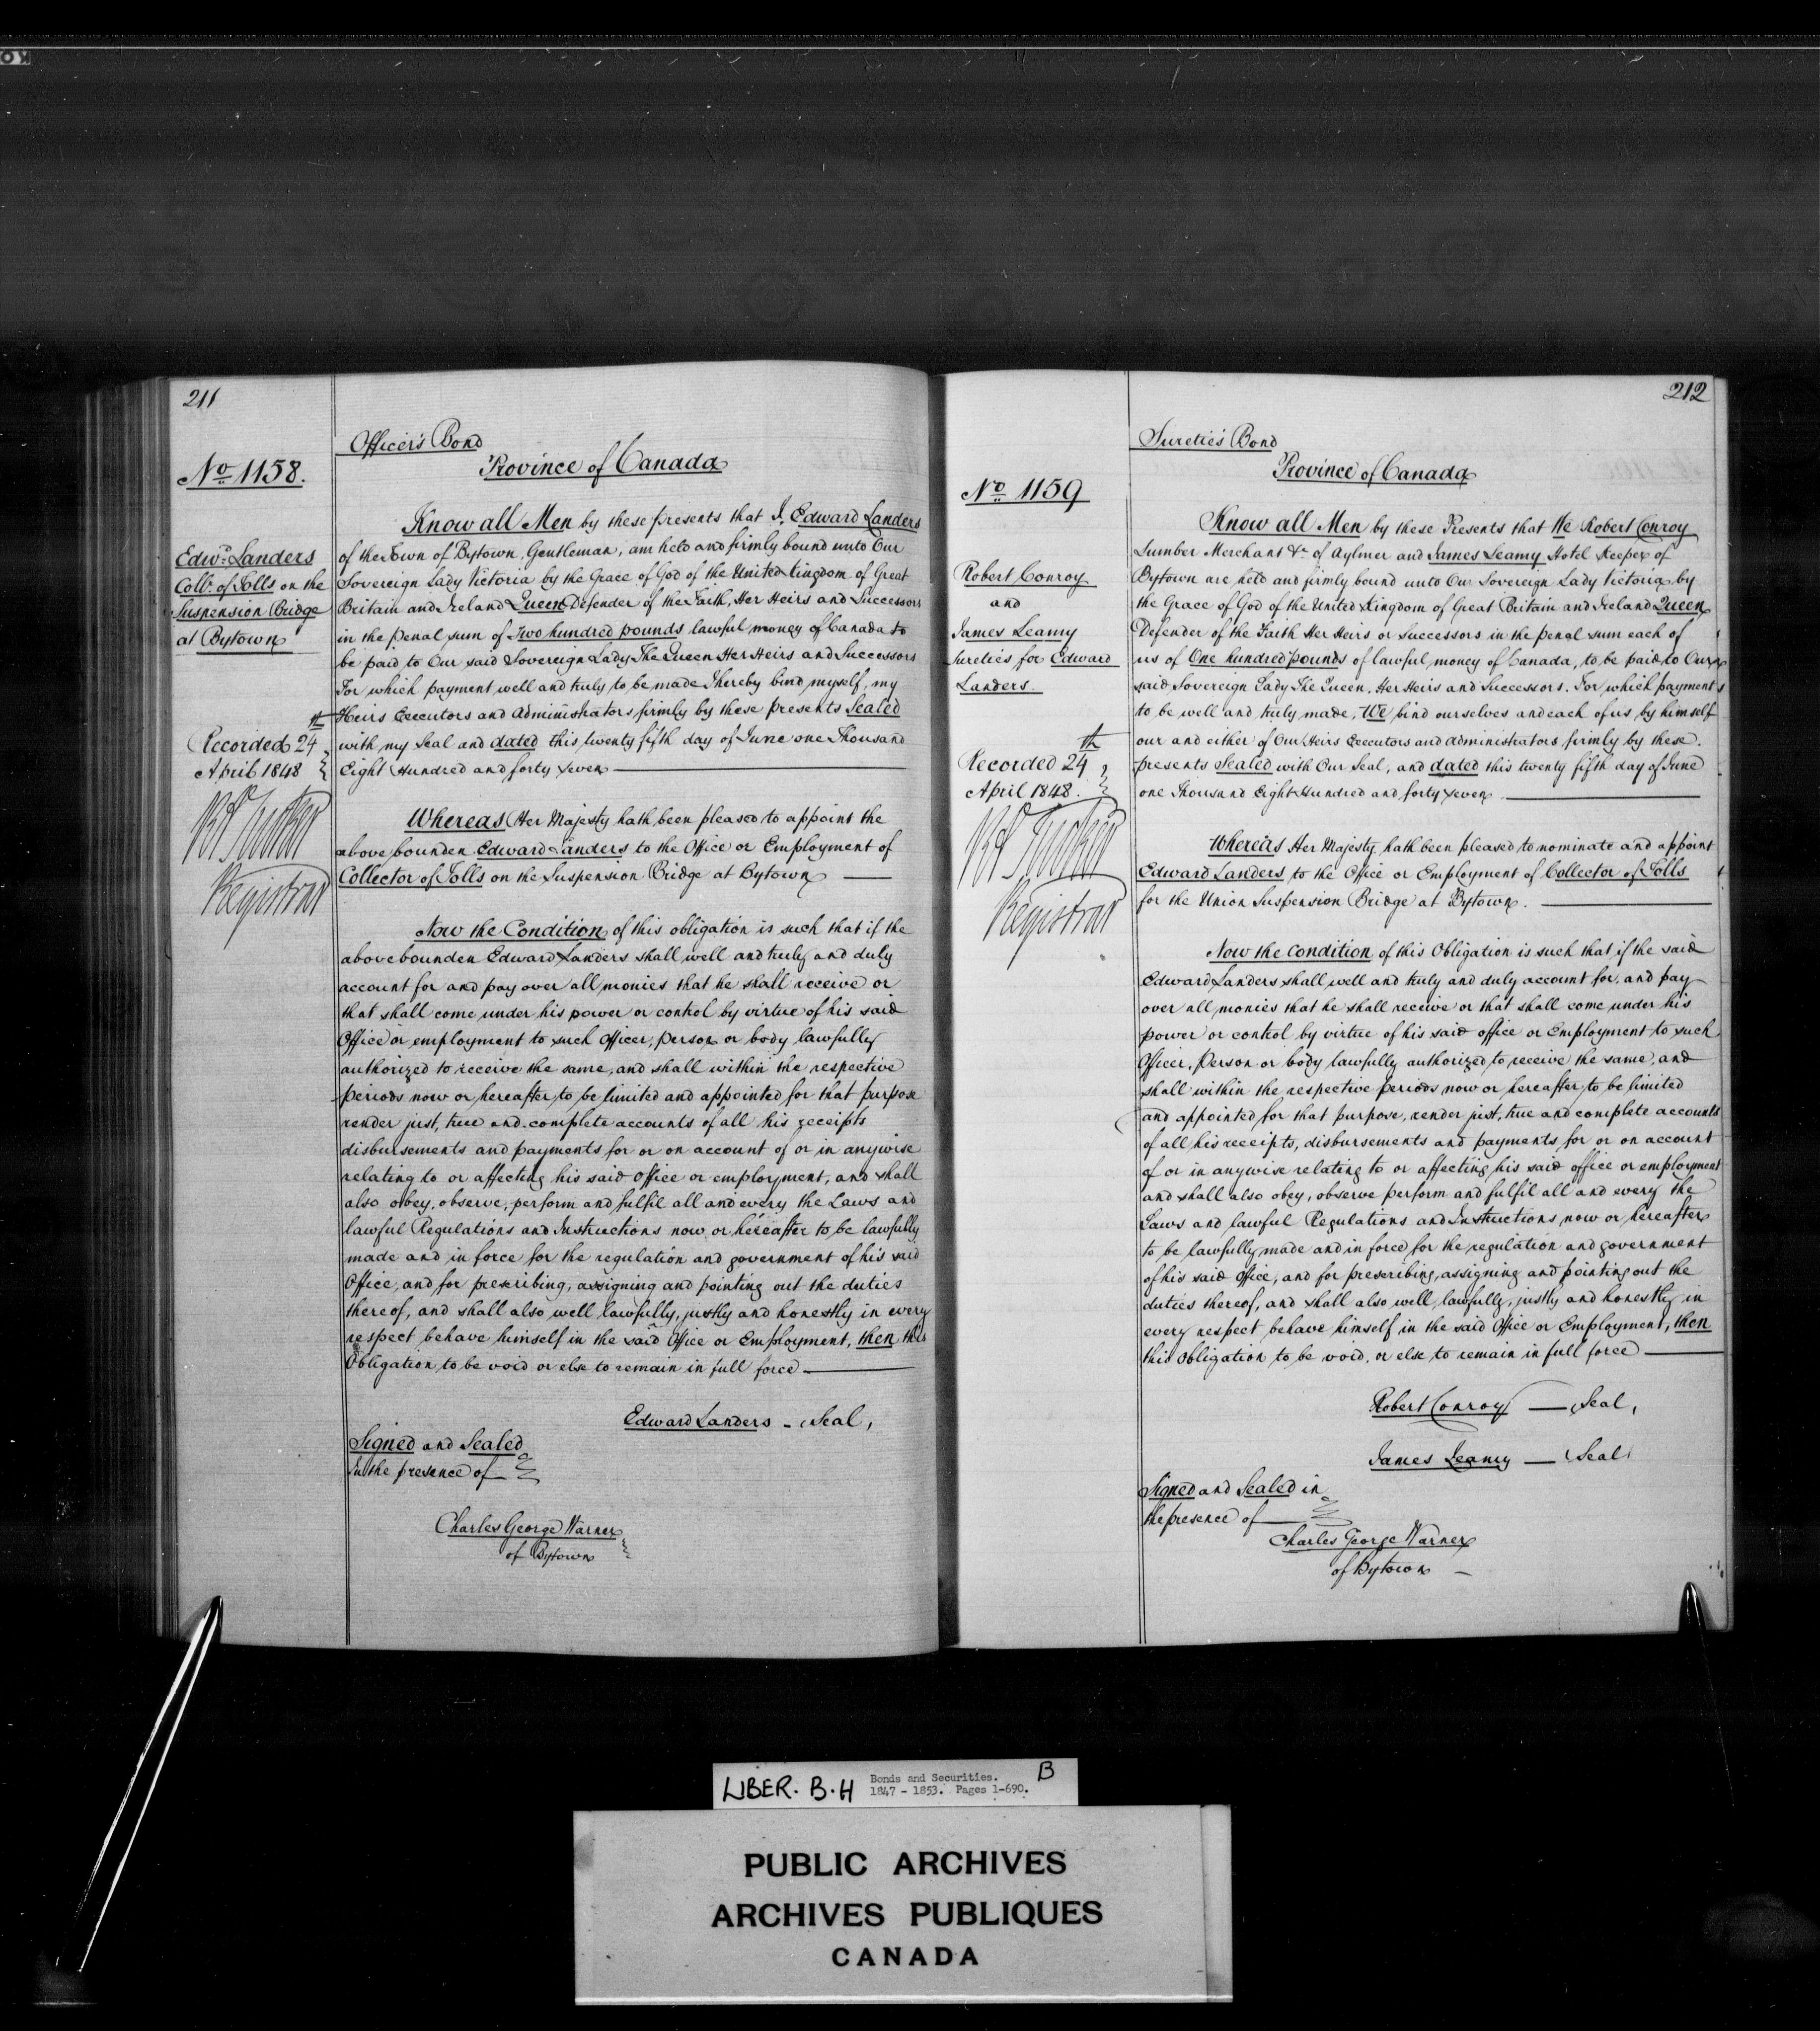 211
Officer's Bond
Province of Canada
No 1158.
Know all Men by these presents that I, Edward Landers
of the Town of Bytown, Gentleman, am held and firmly bound unto Our
Sovereign Lady Victoria by the Grace of God of the United Kingdom of Great
Britain and Ireland Queen Defender of the Faith, Her Heirs and Successors
in the penal sum of Two hundred pounds lawful money of Canada to
be paid to Our said Sovereign Lady The Queen Her Heirs and Successors
For which payment well and truly to be made I hereby bind myself, my
Heirs Executors and Administrators firmly by these presents Sealed
with my Seal and dated this twenty fifth day of June one Thousand
Eight Hundred and forty seven
Edwd. Landers
Collr. of Tolls on the
Suspension Bridge
at Bytown
Recorded 24th
April 1848
R A Tucker
Registrar
Whereas Her Majesty hath been pleased to appoint the
above bounden Edward Landers to the Office or Employment of
Collector of Tolls on the Suspension Bridge at Bytown
Now the Condition of this obligation is such that if the
above bounden Edward Landers shall well and truly and duly
account for and pay over all monies that he shall receive or
that shall come under his power or control by virtue of his said
Office or employment to such Officer, person or body lawfully
authorized to receive the same, and shall within the respective
periods now or hereafter to be limited and appointed for that purpose
render just, true and complete accounts of all his receipts
disbursements and payments for or on account of or in anywise
relating to or affecting his said Office or employment, and shall
also obey, observe, perform and fulfil all and every the Laws and
lawful Regulations and Instructions now or hereafter to be lawfully
made and in force for the regulation and government of his said
Office, and for prescribing, assigning and pointing out the duties
thereof, and shall also well lawfully, justly and honestly in every
respect behave himself in the said Office or Employment, then this
Obligation to be void or else to remain in full force
Edward Landers - (Seal)
Signed and Sealed
In the presence of
Charles George Warner
of Bytown
212
Sureties Bond
Province of Canada
No 1159
Know all Men by these Presents that We Robert Conroy
Lumber Merchant &c of Aylmer and James Leamy Hotel Keeper of
Bytown are held and firmly bound unto Our Sovereign Lady Victoria by
the Grace of God of the United Kingdom of Great Britain and Ireland Queen
Defender of the Faith Her Heirs or Successors in the penal sum each of
us of One hundred pounds of lawful money of Canada, to be paid to Our
said Sovereign Lady The Queen, Her Heirs and Successors. For which payments
to be well and truly made, We bind ourselves and each of us by himself
our and either of Our Heirs Executors and Administrators firmly by these
presents Sealed with Our Seal, and dated this twenty fifth day of June
one Thousand Eight Hundred and forty seven
Robert Conroy
and
James Leamy
Sureties for Edward
Landers.
Recorded 24th
April 1848.
R A Tucker
Registrar
Whereas Her Majesty hath been pleased to nominate and appoint
Edward Landers to the Office or Employment of Collector of Tolls
for the Union Suspension Bridge at Bytown.
Now the Condition of this Obligation is such that if the said
Edward Landers shall well and truly and duly account for, and pay
over all monies that he shall receive or that shall come under his
power or control by virtue of his said office or Employment to such
Officer, Person or body lawfully authorized to receive the same, and
shall within the respective periods now or hereafter to be limited
and appointed for that purpose, render just, true and complete accounts
of all his receipts, disbursements and payments for or on account
of or in anywise relating to or affecting his said office or employment
and shall also obey, observe perform and fulfil all and every the
Laws and lawful Regulations and Instructions now or hereafter
to be lawfully made and in force for the regulation and government
of his said Office, and for prescribing, assigning and pointing out the
duties thereof, and shall also well, lawfully, justly and honestly in
every respect behave himself in the said Office or Employment, then
this obligation to be void, or else to remain in full force
Robert Conroy — (Seal)
James Leamy — (Seal)
Signed and Sealed in
the presence of
Charles George Warner
of Bytown
LIBER. B.H
Bonds and Securities.
1847 - 1853. Pages 1-690.
B
PUBLIC ARCHIVES
ARCHIVES PUBLIQUES
CANADA